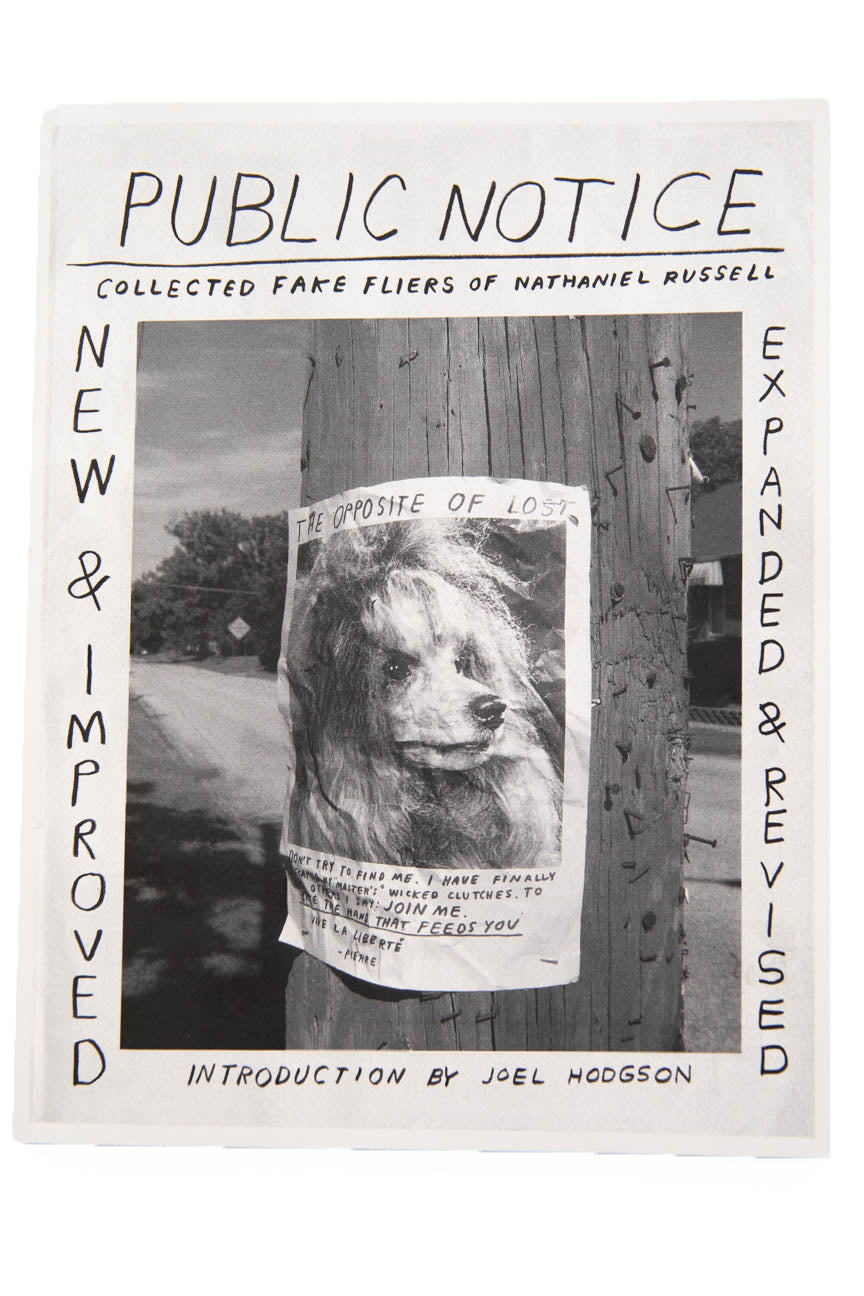 PUBLIC NOTICE
COLLECTED FAKE FLIERS OF NATHANIEL RUSSELL
NEW & IMPROVED
EXPANDED & REVISED
THE OPPOSITE OF LOST
DON'T TRY TO FIND ME. I HAVE FINALLY
ESCAPED MY "MASTER'S" WICKED CLUTCHES. TO
OTHERS I SAY: JOIN ME.
BITE THE HAND THAT FEEDS YOU
VIVE LA LIBERTÉ
-PIERRE
INTRODUCTION BY JOEL HODGSON